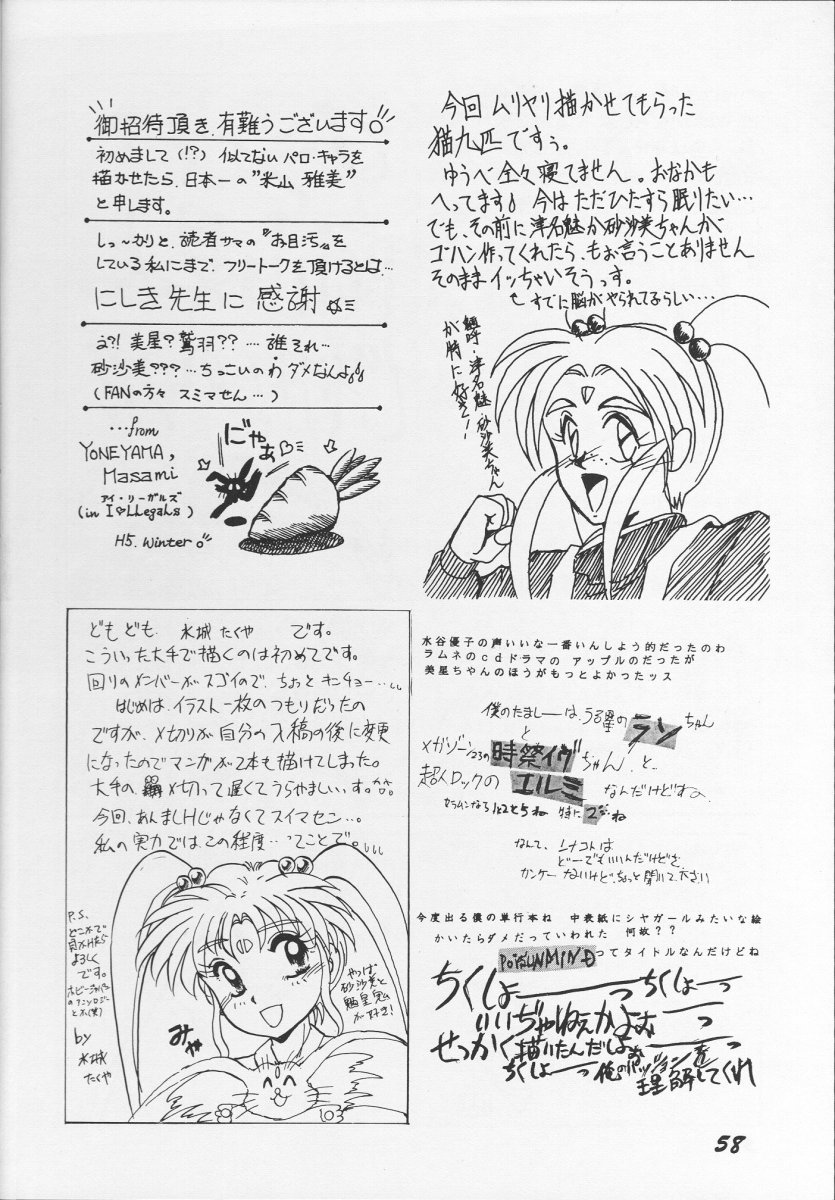 今回 ムリヤリ描かせてもらった
猫九匹ですぅ。
ゆうべ全々寝てません。おなかも
へってます♪ 今はただひたすら眠りたい…
でも、その前に津名魅か砂沙美ちゃんが
ゴハン作ってくれたら、もお言うことありません
そのままイッちゃいそうっす。
すでに脳がやられてるらしい…
魎呼・津名魅 砂沙美ちゃん
が特に好き!
御招待頂き、有難うございます
初めまして(!?) 似てない パロ・キャラを
描かせたら、日本一の〝米山 雅美〟
と申します。
しっ~かりと、読者サマの〝お目汚〟を
している私にまで、フリートークを頂けるとは…
にしき先生に 感謝
え?! 美星? 鷲羽?? …. 誰それ…
砂沙美??? …ちっこいのわ ダメなんよ
(FANの方々 スミマせん…)
…from
YONEYAMA,
Masami
アイ・リーガルズ
(in I♡LLegaLs)
H5. Winter。
にゃあ
どもども、水城 たくや です。
こういった大手で描くのは初めてです。
回りのメンバーがスゴイので、ちょっとキンチョー…
はじめは、イラスト一枚のつもりだったの
ですが、〆切りが自分の入稿の後に変更
になったのでマンガが2本も描けてしまった。
大手の 〆切って遅くてうらやましいっす。
今回、あんましHじゃなくてスイマセン…。
私の実力では、この程度…ってことで。
P.S.
どこかで
見かけたら
よろしく
です。
by
水城
たくや
みゃ
やっぱ
砂沙美と
が好き!
水谷優子の声いいな一番いんしよう的だったのわ
ラムネのcdドラマの アップルのだったが
美星ちゃんのほうがもっとよかったッス
僕のたましーは、うる星のランちゃん
と
メガゾーン23の時祭イヴちゃん、と、
超人ロックのエルミ なんだけどすよ、
セラムンなら1と2と5ね 特に2ね
なんて、こんなコトは
どーでもいいんだけどさ、
カンケーないけど、ちょっと聞いて下さい
今度出る僕の単行本ね 中表紙にシヤガールみたいな絵
かいたらダメだっていわれた 何故??
POISUNMINDってタイトルなんだけどね
ちくしょーーっちくしょーっ
いいぢゃねえかよぉーっ
せっかく描いたんだしょおーっ
ちくしょーっ 俺のパッションを
理解してくれ
58